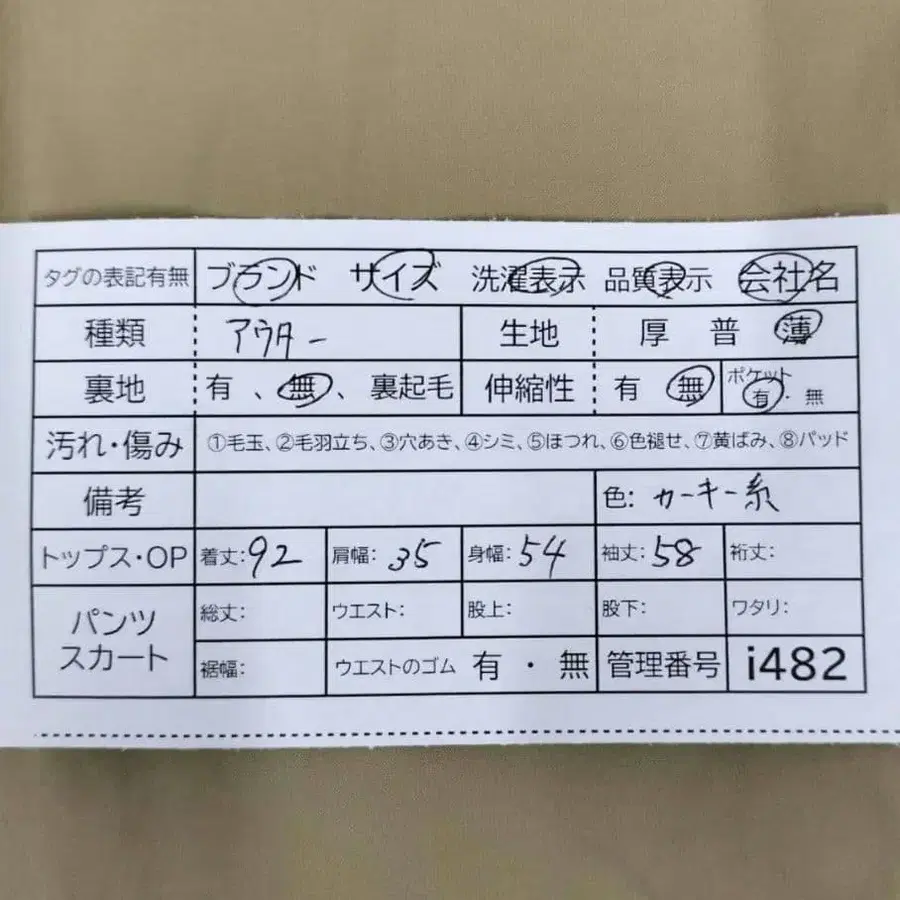 タグの表記有無 ブランド サイズ 洗濯表示 品質表示 会社名
種類 アウター 生地 厚 普 薄
裏地 有、無、裏起毛 伸縮性 有 無 ポケット 有・無
汚れ・傷み ①毛玉、②毛羽立ち、③穴あき、④シミ、⑤ほつれ、⑥色褪せ、⑦黄ばみ、⑧パッド
備考 色: カーキー系
トップス・OP 着丈:92 肩幅: 35 身幅: 54 袖丈:58 裄丈:
パンツ スカート 総丈: ウエスト: 股上: 股下: ワタリ:
裾幅: ウエストのゴム 有・無 管理番号 i482